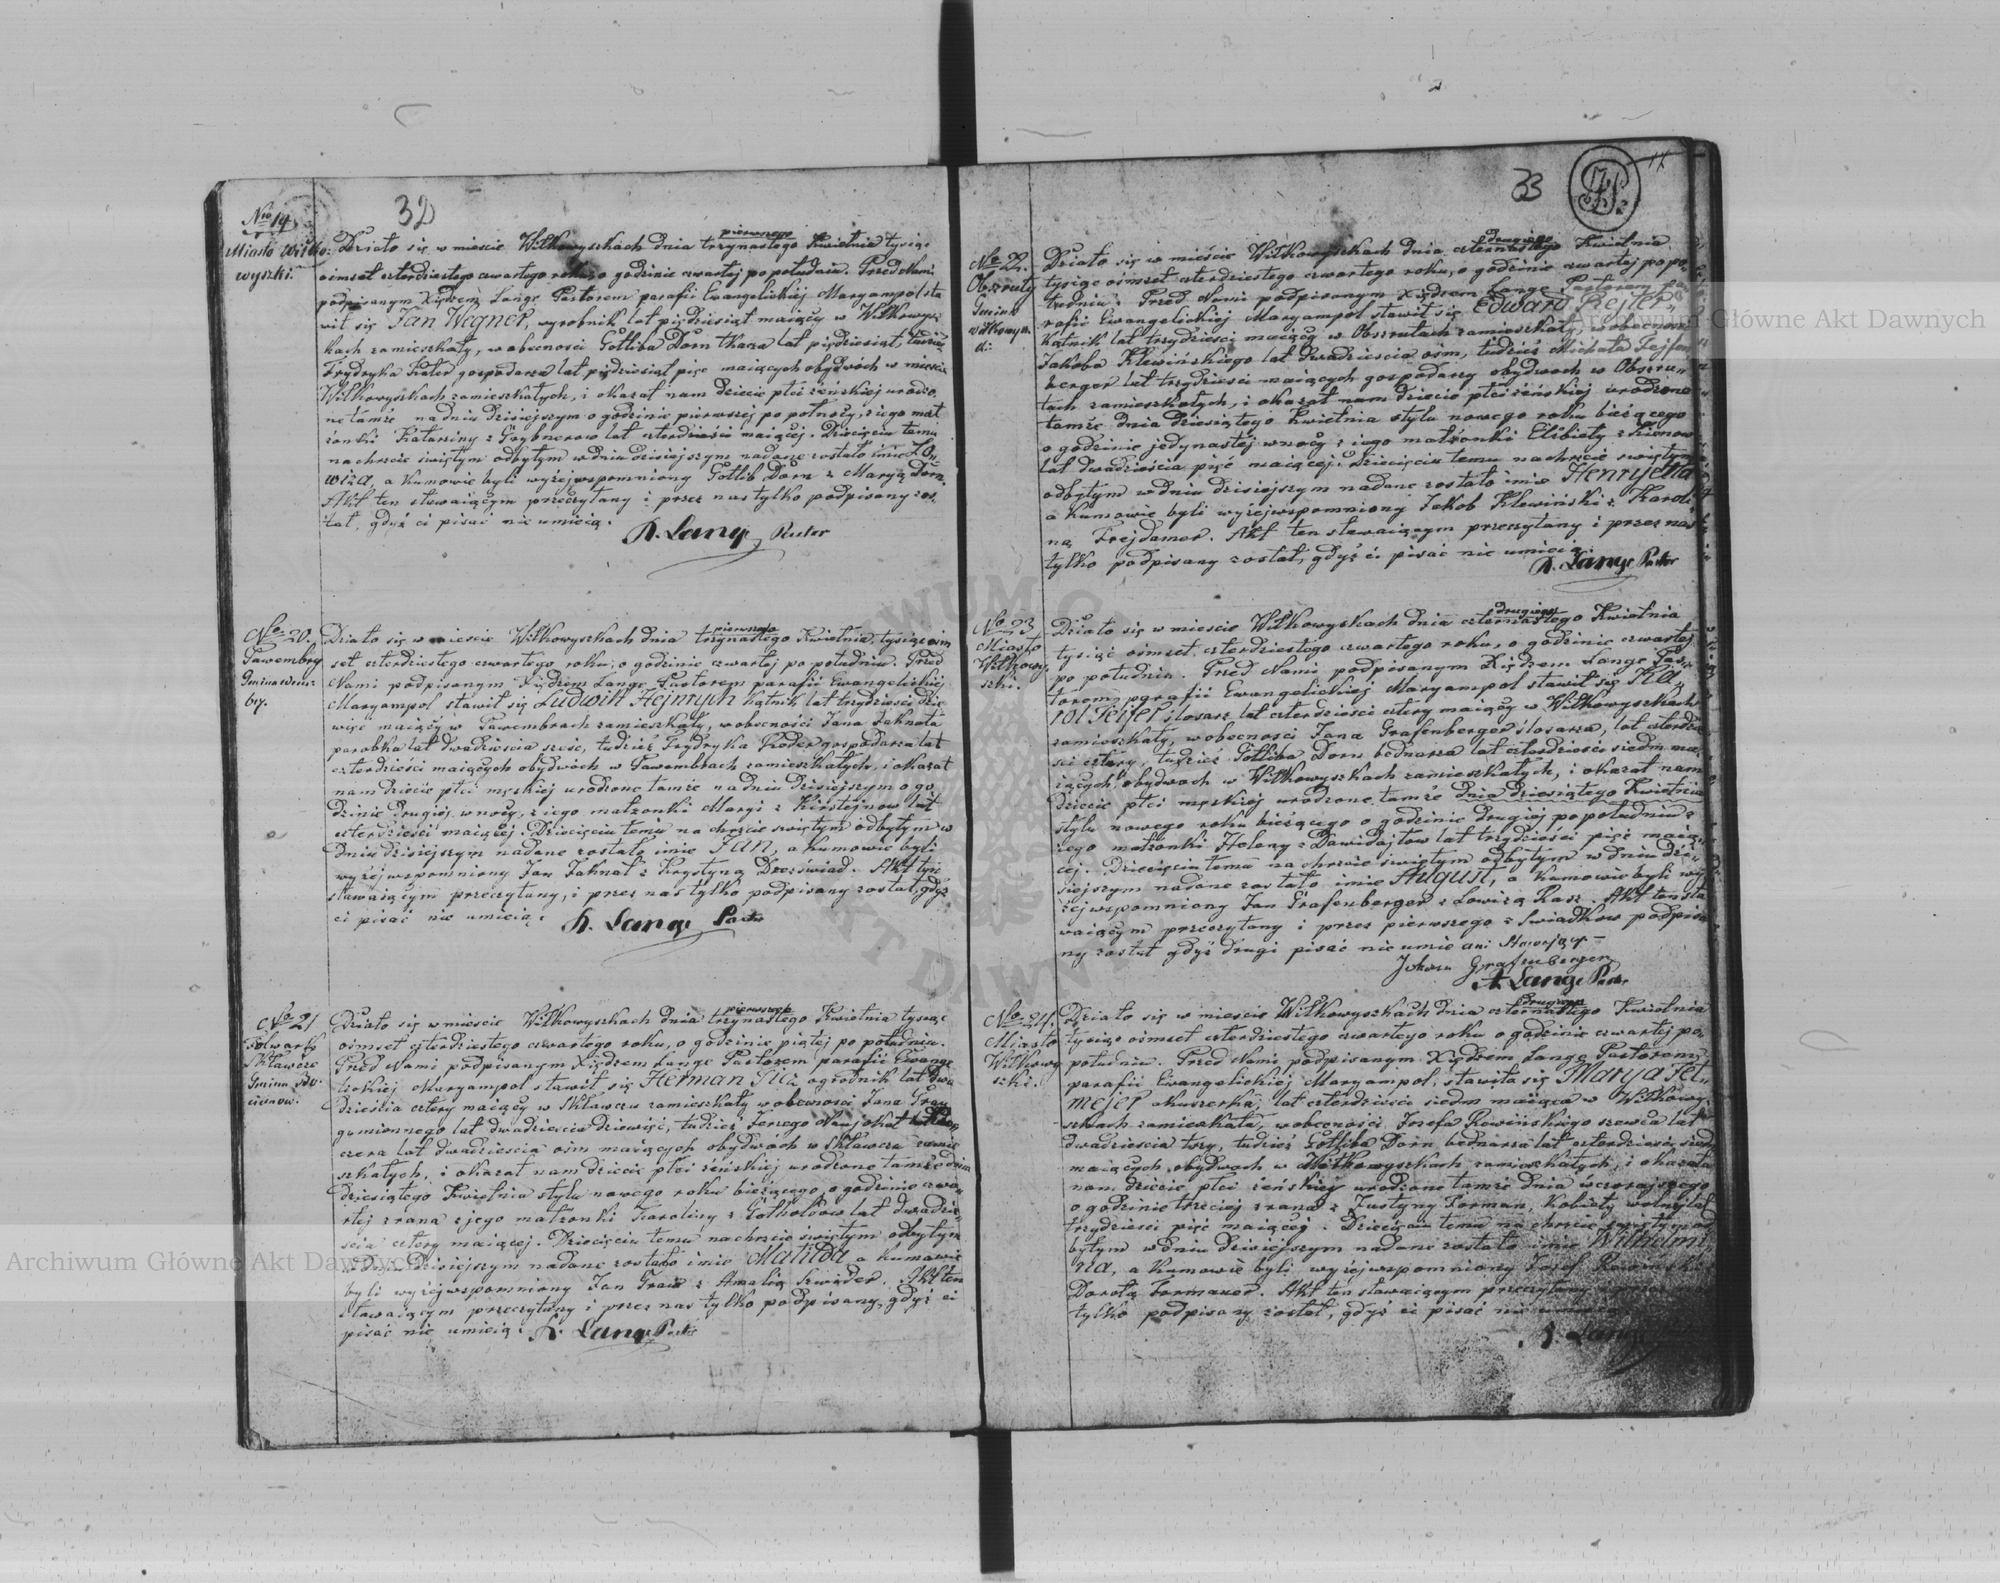 32
Nro 19
Miasto Wiłko:
wyszki.
Działo się w mieście Wiłkowyszkach dnia pierwszego trzynastego Kwietnia tysiąc
ośmset czterdziestego czwartego roku, o godzinie czwartej po południu. Przed Nami
podpisanym Xiędzem Lange Pastorem parafii Ewangelickiej Maryampol sta
wił się Jan Wegner, wyrobnik lat pięćdziesiąt maiący w Wiłkowysz
kach zamieszkały, w obecności Gotliba Dorn tkacza lat pięćdziesiąt, tudzież
Frydryka gospodarza lat pięćdziesiąt pięć maiących obydwóch w mieście
Wiłkowyszkach zamieszkałych, i okazał nam dziecię płci żeńskiej urodzo
ne tamże na dniu dzisiejszym o godzinie pierwszej po północy, z iego mał
żonki Katarziny z Grybnerow lat czterdzieści maiącej. Dziecięciu temu
na chrzcie świętym odbytym w dniu dzisiejszym nadane zostało imie Lo„
wiza, a Kumowie byli wyżej wspomniony Gotlib Dorn z Maryą Dorn.
Akt ten stawaiącym przeczytany i przez nas tylko podpisany zos
tał, gdyż ci pisać nie umieią.
A. Lange Pastor
No 20.
Pawembry
Gmina
bry.
Działo się w mieście Wiłkowyszkach dnia pierwszego trzynastego Kwietnia tysiąc ośm
set czterdziestego czwartego roku, o godzinie czwartej po południu. Przed
Nami podpisanym Xiędzem Lange Pastorem parafii Ewangelickiej
Maryampol stawił się Ludwik Hejnrych kątnik lat trzydzieści dzie
więć maiący w Pawembrach zamieszkały, w obecności Jana Jahnata
parobka lat dwadzieścia sześć, tudzież Frydryka Roder gospodarza lat
czterdzieści maiących obydwóch w Pawembrach zamieszkałych, i okazał
nam dziecię płci męzkiej urodzone tamże na dniu dzisiejszym o go
dzinie drugiej w nocy, z iego małżonki Maryi z Kirstejnow lat
czterdzieści maiącej. Dziecięciu temu na chrzcie świętym odbytym w
dniu dzisiejszym nadane zostało imie Jan, a Kumowie byli
wyżej wspomniony Jan Jahnat z Krystyną. Akt ten
stawaiącym przeczytany, i przez nas tylko podpisany został, gdyż
ci pisać nie umieią.
A. Lange Pastor
No 21
Folwark
Skławcze
Gmina
Działo się w mieście Wiłkowyszkach dnia pierwszego trzynastego Kwietnia tysiąc
ośmset czterdziestego czwartego roku, o godzinie piątej po południu.
Przed Nami podpisanym Xiędzem Lange Pastorem parafii Ewange
lickiej Maryampol stawił się Herman ogrodnik lat dwa
dzieścia cztery maiący w Skławczu zamieszkały w obecności Jana Graw
gumiennego lat dwadzieścia dziewięć, tudzież Jerzego
lat dwadzieścia ośm maiących obydwóch w Skławczu zamie
szkałych, i okazał nam dziecię płci żeńskiej urodzone tamże dnia
dziesiątego Kwietnia stylu nowego roku bieżącego o godzinie czwa„
rtej z rana z jego małżonki Karoliny z Gotholdow lat dwadzie„
ścia cztery maiącej. Dziecięciu temu na chrzcie świętym odbytym
w dniu dzisiejszym nadane zostało imie Matilda a Kumowie
byli wyżej wspomniony Jan Graw z Amalią Szwider. Akt ten
stawaiącym przeczytany i przez nas tylko podpisany, gdyż ci
pisać nie umieią.
A. Lange Pastor
33
No 22.
Obszruty
Gmina
Wiłkowysz
ki:
Działo się w mieście Wiłkowyszkach dnia drugiego czternastego Kwietnia
tysiąc ośmset czterdziestego czwartego roku, o godzinie czwartej po po„
łudniu. Przed Nami podpisanym Xiędzem Lange Pastorem pa
rafii Ewangelickiej Maryampol stawił się Edward Rejter,
kątnik lat trzydzieści maiący w Obszrutach zamieszkały, w obecności
Jakoba Klewińskiego lat dwadzieścia ośm, tudzież Michała Fejfen
berger lat trzydzieści maiących gospodarzy obydwóch w Obszru„
tach zamieszkałych, i okazał nam dziecię płci żeńskiej urodzone
tamże dnia dziesiątego Kwietnia stylu nowego roku bieżącego
o godzinie jedynastej w nocy z iego małżonki Elżbiety z
lat dwadzieścia pięć maiącej. Dziecięciu temu na chrzcie świętym
odbytym w dniu dzisiejszym nadane zostało imie Henryjetta
a Kumowie byli wyżej wspomniony Jakob Klewiński z Karoli
ną Frejdamer. Akt ten stawaiącym przeczytany i przez nas
tylko podpisany został, gdyż ci pisać nie umieią.
A. Lange Pastor
No 23
Miasto
Wiłkowy
szki.
Działo się w mieście Wiłkowyszkach dnia drugiego czternastego Kwietnia
tysiąc ośmset czterdziestego czwartego roku, o godzinie czwartej
po południu. Przed Nami podpisanym Xiędzem Lange Pas„
torem parafii Ewangelickiej Maryampol stawił się Ka„
rol Fejfer ślosarz lat czterdzieści cztery maiący w Wiłkowyszkach
zamieszkały, w obecności Jana Grafenberger ślosarza, lat czterdzie
ści cztery, tudzież Gotliba Dorn bednarza lat czterdzieści siedm ma„
iących, obydwóch w Wiłkowyszkach zamieszkałych, i okazał nam
dziecię płci męzkiej urodzone tamże dnia dziesiątego Kwietnia
stylu nowego roku bieżącego o godzinie drugiej po południu z
iego małżonki Heleny z Dawidajtow lat trzydzieści pięć maią„
cej. Dziecięciu temu na chrzcie świętym odbytym w dniu dzi„
siejszym nadane zostało imie August, a Kumowie byli wy
żej wspomniony Jan Grafenberger z Lowizą Rasz. Akt ten sta
waiącym przeczytany i przez pierwszego z Swiadkow podpisa
ny został gdyż drugi pisać nie umie ani Stawający.
Johann Grafenberger
A. Lange Pastor
No 24.
Miasto
Wiłkowy
szki.
Działo się w mieście Wiłkowyszkach dnia drugiego czternastego Kwietnia
tysiąc ośmset czterdziestego czwartego roku o godzinie czwartej po„
południu. Przed Nami podpisanym Xiędzem Lange Pastorem
parafii Ewangelickiej Maryampol, stawiła się Marya Fet„
mejer akuszerka, lat czterdzieści siedm maiąca w Wiłkowy„
szkach zamieszkała, w obecności Jozefa Rewińskiego szewca lat
dwadzieścia trzy, tudzież Gotliba Dorn bednarza lat czterdzieści siedm
maiących obydwoch w Wiłkowyszkach zamieszkałych, i okazała
nam dziecię płci żeńskiej urodzone tamże dnia wczorajszego
o godzinie trzeciej z rana z Justyny Forman, Kobiety wolnej lat
trzydzieści pięć maiącej. Dziecięciu temu na chrzcie świętym od
bytym w dniu dzisiejszym nadane zostało imie Wilhelmi
na, a Kumowie byli wyżej wspomniony Jozef
Dorotą Formaner. Akt ten stawaiącym przeczytany
tylko podpisany został, gdyż ci pisać nie
A. Lange
Archiwum Główne Akt Dawnych
Archiwum Główne Akt Dawnych